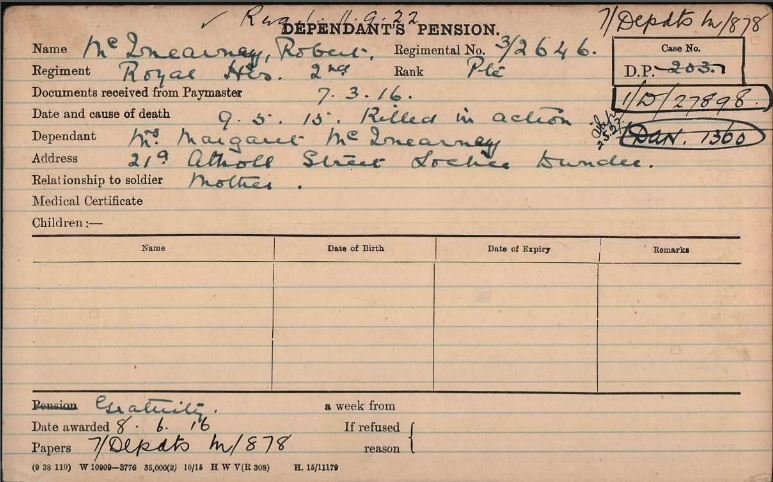 ✓ 11.9.22 7/Depdts M/878
DEPENDANT'S PENSION.
Name McInearney, Robert. Regimental No. 3/2646.
Case No.
Regiment Royal Hrs. 2nd Rank Pte
D.P. 203
Documents received from Paymaster 7.3.16.
1/D/27898.
Date and cause of death 9.5.15. Killed in action
Dependant Mrs Margaret McInearney
DUN. 1360
Address 21a Atholl Street Lochee Dundee.
Relationship to soldier Mother.
Medical Certificate
Children :—
Name Date of Birth Date of Expiry Remarks
Pension Gratuity. a week from
Date awarded 8.6.16 If refused
Papers 7/Depdts M/878 reason
(9 38 110) W 10909—3776 35,000(2) 10/15 H W V(R 308) H. 15/11179